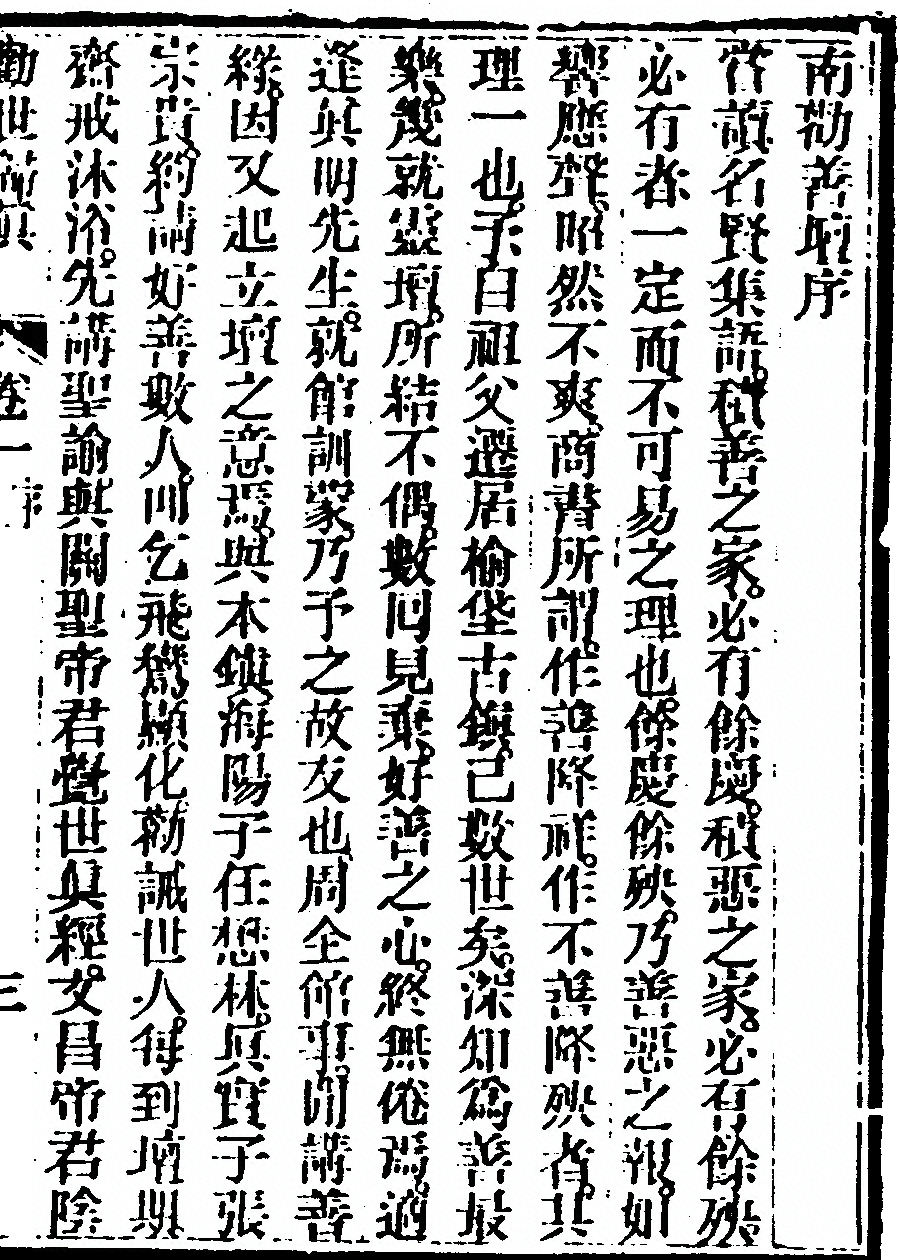 南勸善壇序
嘗讀名賢集語積善之家必有餘慶積惡之家必有餘殃
必有者一定而不可易之理也餘慶餘殃乃善惡之報如
響應聲昭然不爽商書所謂作善降祥作不善降殃者其
理一也予自祖父遷居榆垡古鎮已數世矣深知為善最
樂幾就靈壇所結不偶數回見棄好善之心終無倦焉適
逢與明先生就館訓蒙乃予之故友也周全館事閒講善
緣因又起立壇之意焉與本鎮海陽子任想林真寶子張
宗貴約請好善數人叩乞飛鸞顯化勸誡世人每到壇期
齋戒沐浴先講聖諭與關聖帝君覺世真經文昌帝君陰
勸世歸真 卷一 序 三